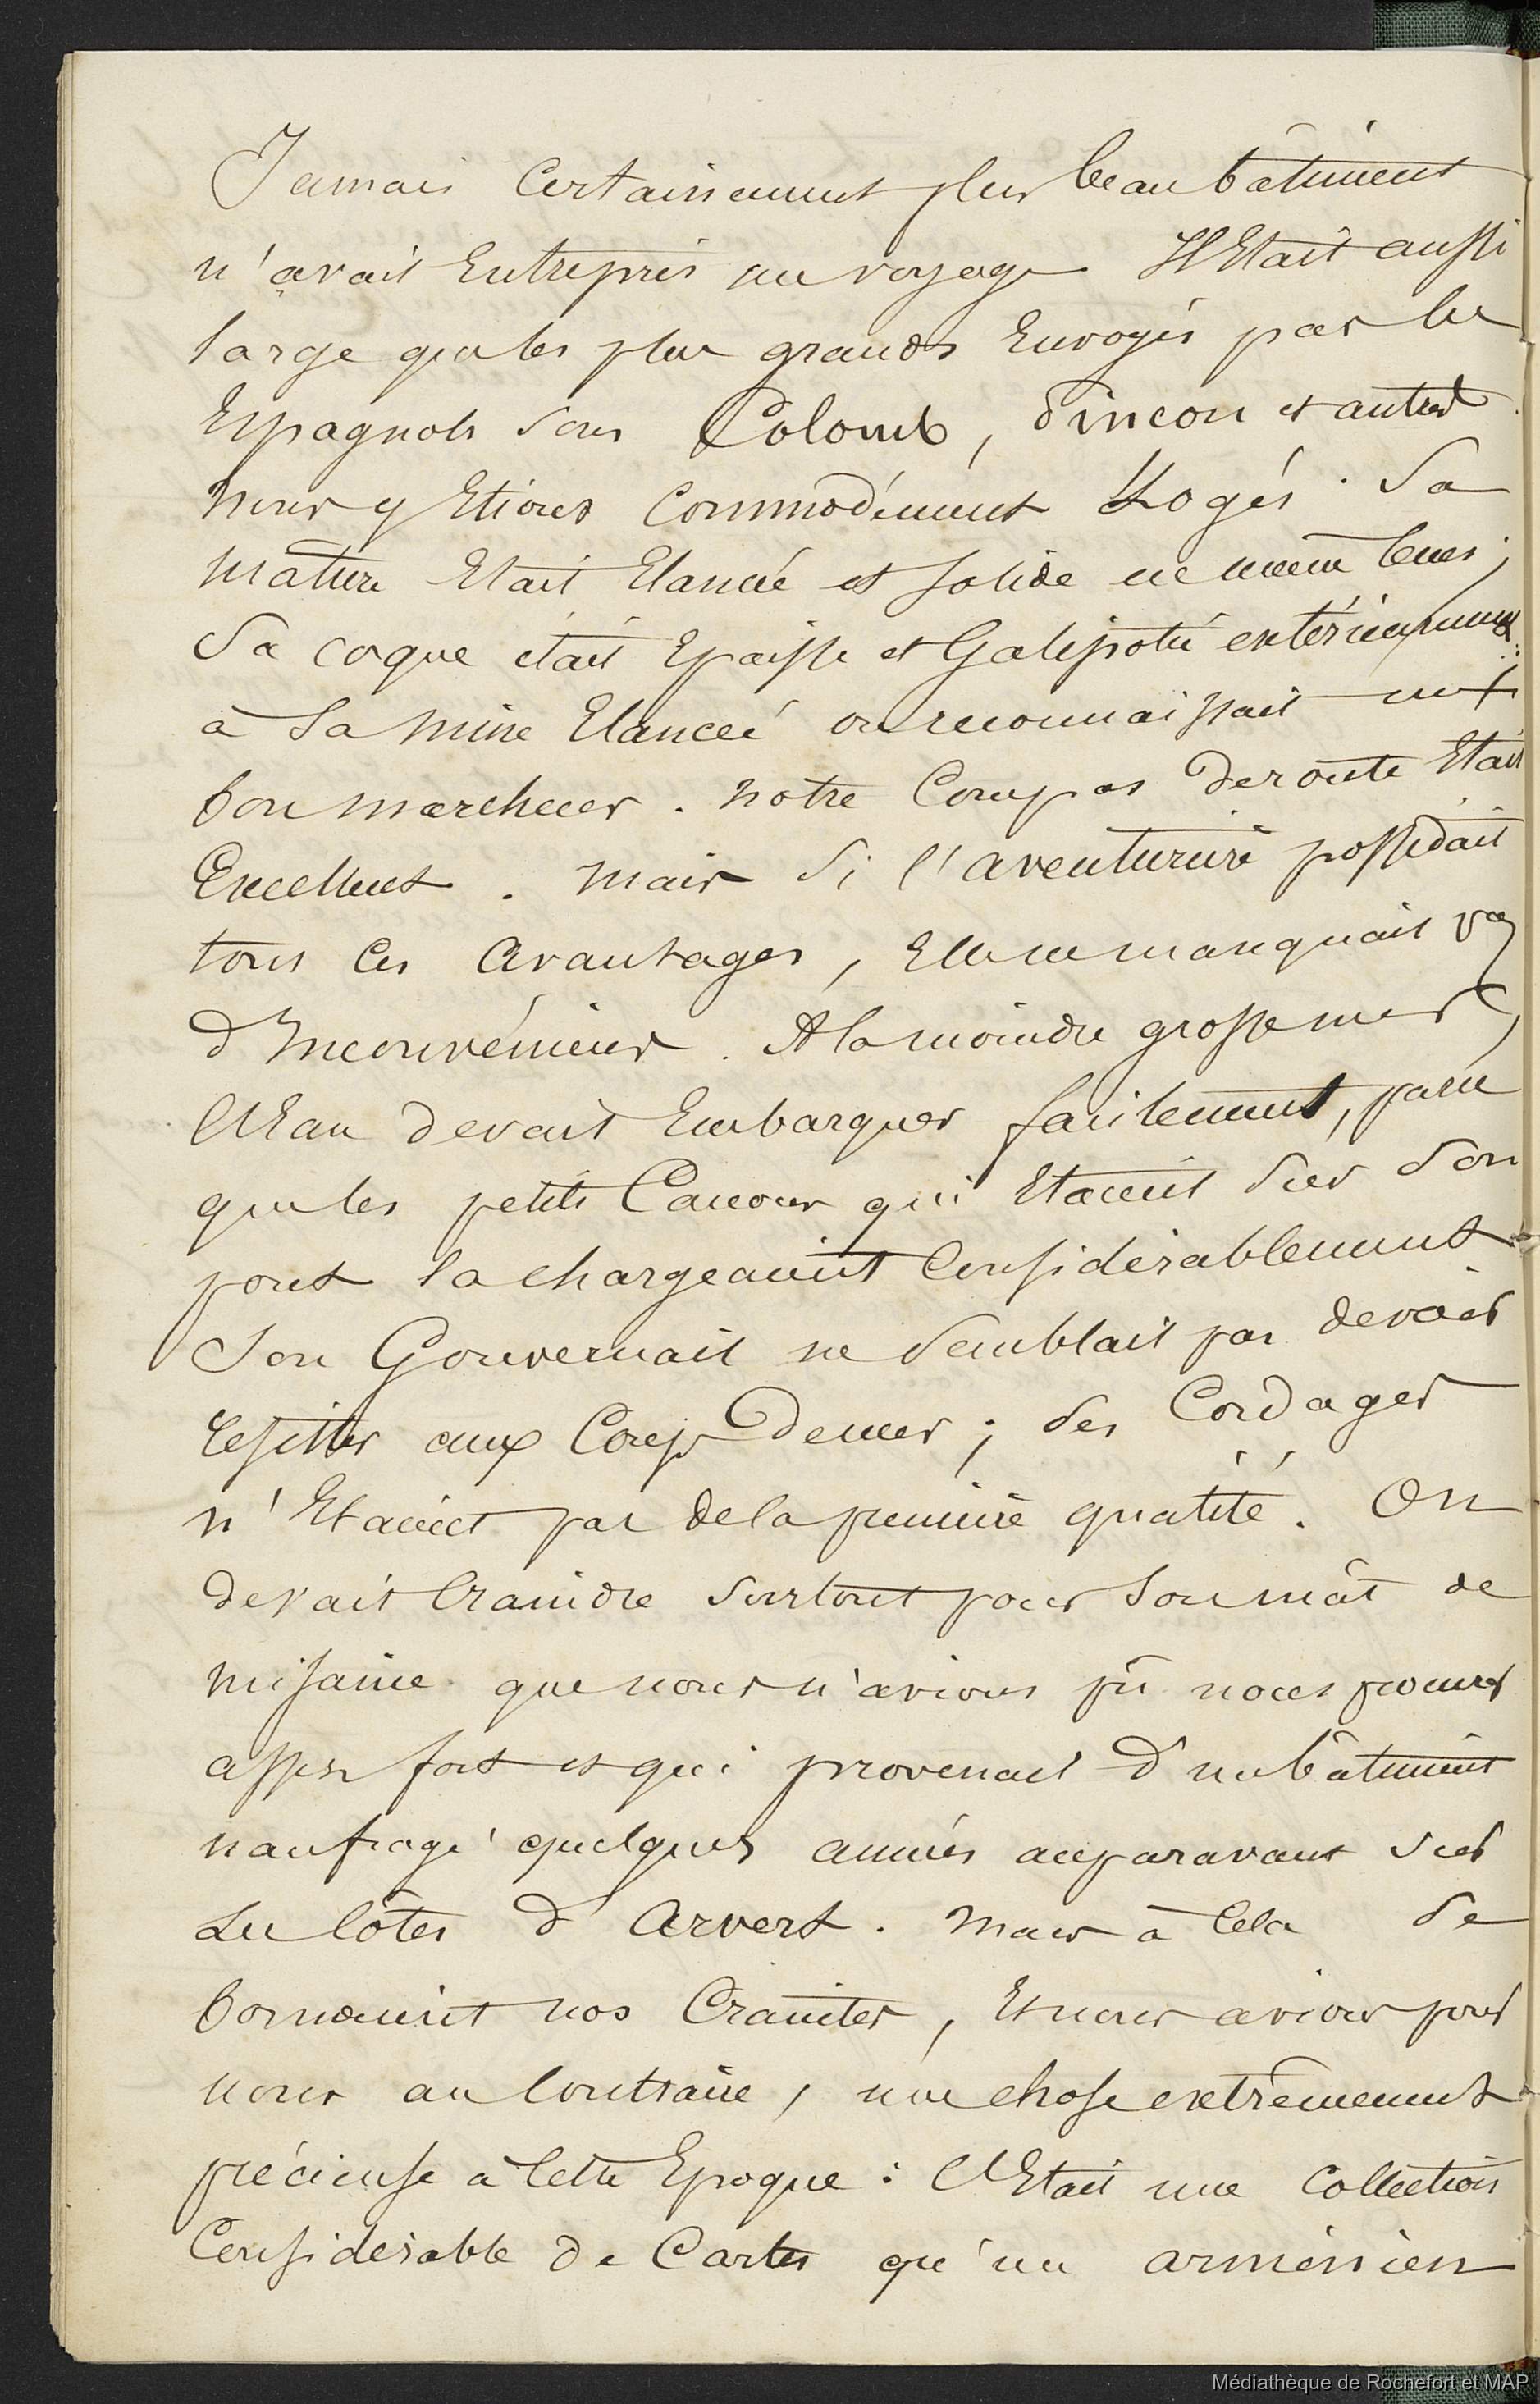 Jamais Certainement plus beau bâtiment
n'avait Entrepris un voyage Il Etait aussi
large que les plus grands Envoyés par les
Espagnols sous Colomb, Pinçon et autres
nous y Etions Commodément Logés. Sa
mâture Etait Elancée et solide en même tems;
Sa coque était Epaisse et Galipotée extérieurement
à sa mine Elancée on reconnaissait un
bon marcheur. notre Compas de route Etait
Excellent. mais si l'aventurière possédait
tous ces avantages, Elle ne manquait pas
d'Inconvéniens. A la moindre grosse mer,
l'Eau devait Embarquer facilement, parce
que les petits Canons qui Etaient sur son
pont la chargeaient Considérablement
Son Gouvernail ne semblait pas devoir
résister aux Coups de mer; ses Cordages
n'Etaient pas de la première qualité. On
devait Craindre surtout pour son mât de
misaine que nous n'avions pû nous procurer
assez fort et qui provenait d'un bâtiment
naufragé quelques années auparavant sur
les Côtes d'Arvert. Mais à Cela se
bornaient nos Craintes, Et nous avions pour
nous au Contraire, une chose extrêmement
précieuse à Cette Epoque: C'Etait une Collection
Considérable de Cartes qu'un arménien
Médiathèque de Rochefort et MAP